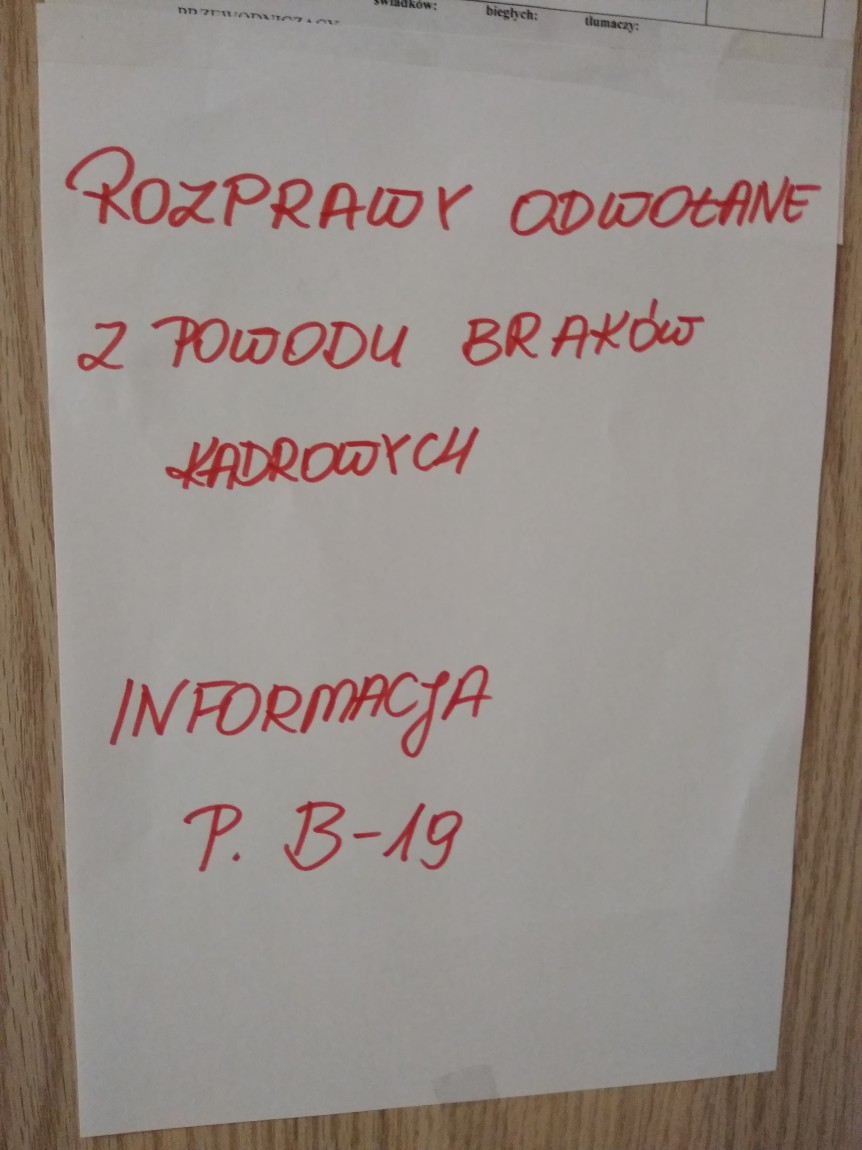 świadków: biegłych: tłumaczy:
PRZEWODNICZĄCY
ROZPRAWY ODWOŁANE
Z POWODU BRAKÓW
KADROWYCH
INFORMACJA
P. B-19